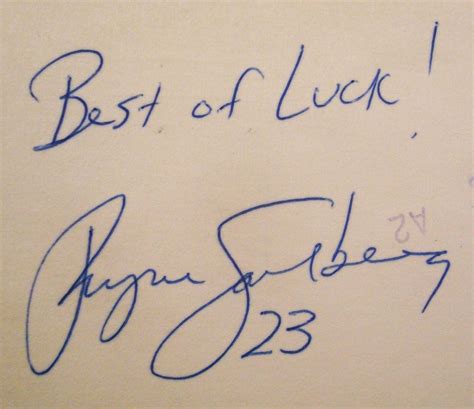 Best of Luck!
Ryne Sandberg
23
A2